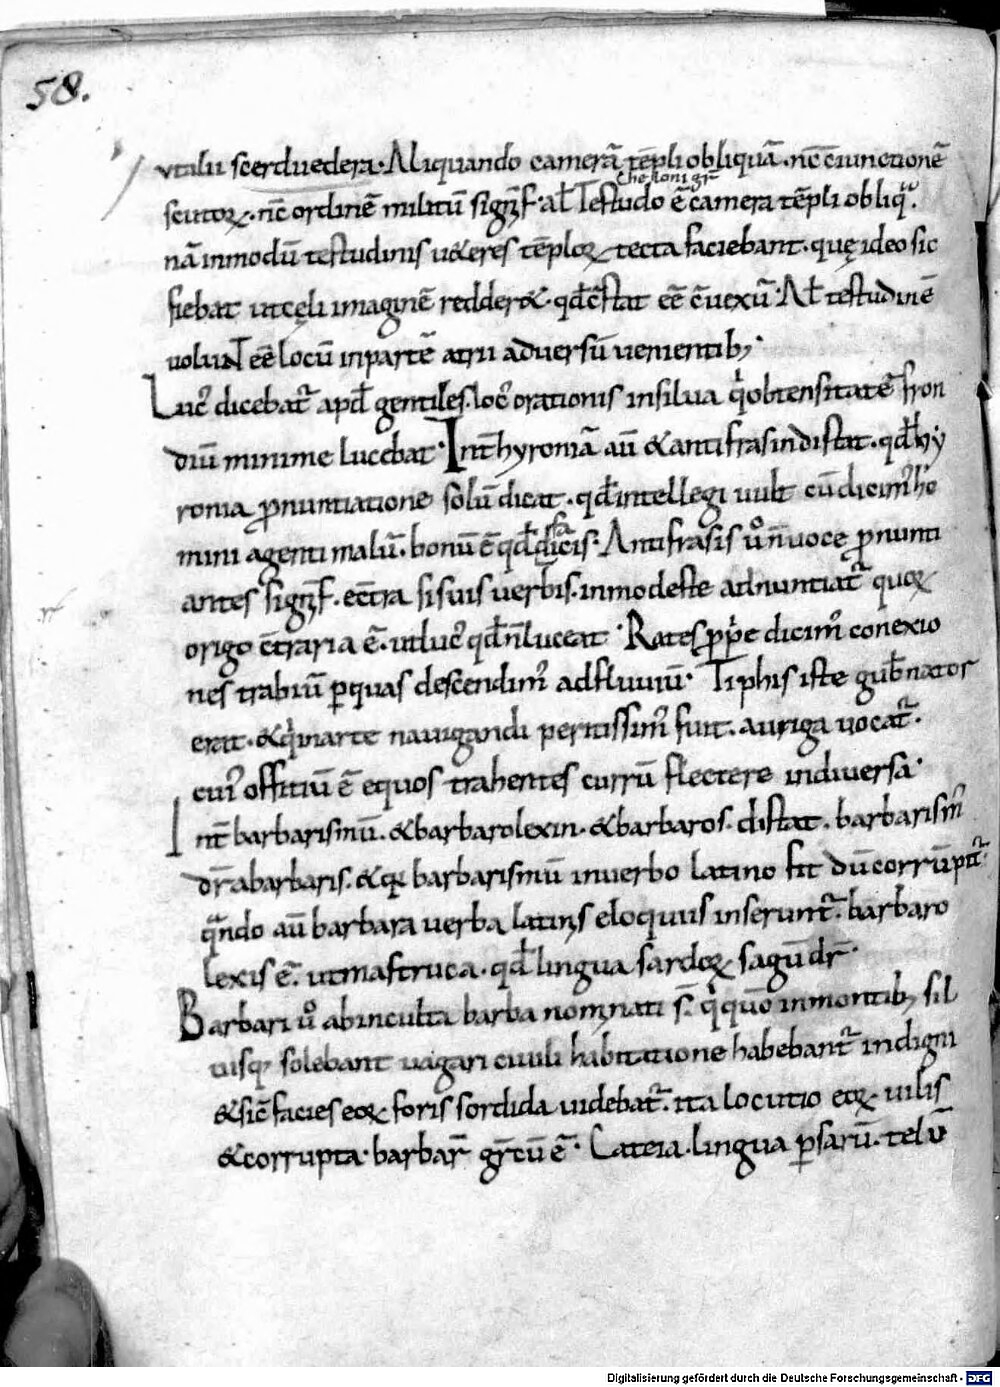 58.
vtilii scerduedera. Aliquando camerã tẽpli obliquã. nc̃ c̃iunctionẽ
chelloni gr̃
scutorꝝ. nc̃ ordinẽ militũ signf̃. al̃ Testudo ẽ camera tẽpli obliq̃.
nã inmodũ testudinis u&eres tẽplorꝝ tecta faciebant. quę ideo sic
fiebat utcęli imaginẽ redder&. qđ c̃stat eẽ c̃uexũ. Al̃ testudinẽ
uoluNT eẽ locũ inpartẽ atrii adversũ uenientib;.
Luc᷒ dicebat᷑ apđ gentiles. loc᷒ orationis insilua q̇ obtensitatẽ fron
diũ minime lucebat. Int̃ hyroniã aũ &antifrasin distat. qđ hy
ronia ꝓnuntiatione solũ dicat. qđ intellegi uult cũ dicim᷒ ho
mini agenti malũ. bonũ ẽ qđ facis. Antifrasis ů ñ uoce ꝓnunti
antes signf̃. ec̃tra sisuis verbis. inmodeste adnuntiat᷑ quorꝝ
origo c̃traria ẽ. utluc᷒ qđ ñ luceat. Rates ꝓp̃e dicim᷒ conexio
nes trabiũ ꝑquas descendim᷒ adfluuiũ. Tiphis iste gub̃nator
erat. &q̇ inarte nauigandi peritissim᷒ fuit. auriga uocat᷑.
cui᷒ offitiũ ẽ equos trahentes currũ flectere indiversa.
Int̃ barbarismũ. &barbarolexin. &barbaros. distat. barbarism᷒
dr̃ abarbaris. & barbarismũ inverbo latino fit dũ corrũpit᷑.
q̃ndo aũ barbara verba latinis eloquiis inserunt᷑. barbaro
lexis ẽ. utmastruca. qđ lingua sardorꝝ sagũ dr̃.
Barbari ů abinculta barba nominati s̃. q̇ quõ inmontib; sil
uisq; solebant uagari ciuili habitatione habebant᷑ indigni
&sic̃ facies eorꝝ foris sordida uidebat᷑. ita locutio eorꝝ. uilis
&corrupta. barbar᷒ gr̃cũ ẽ. Cateia. lingua ꝑsarũ. telũ
Digitalisierung gefördert durch die Deutsche Forschungsgemeinschaft - DFG